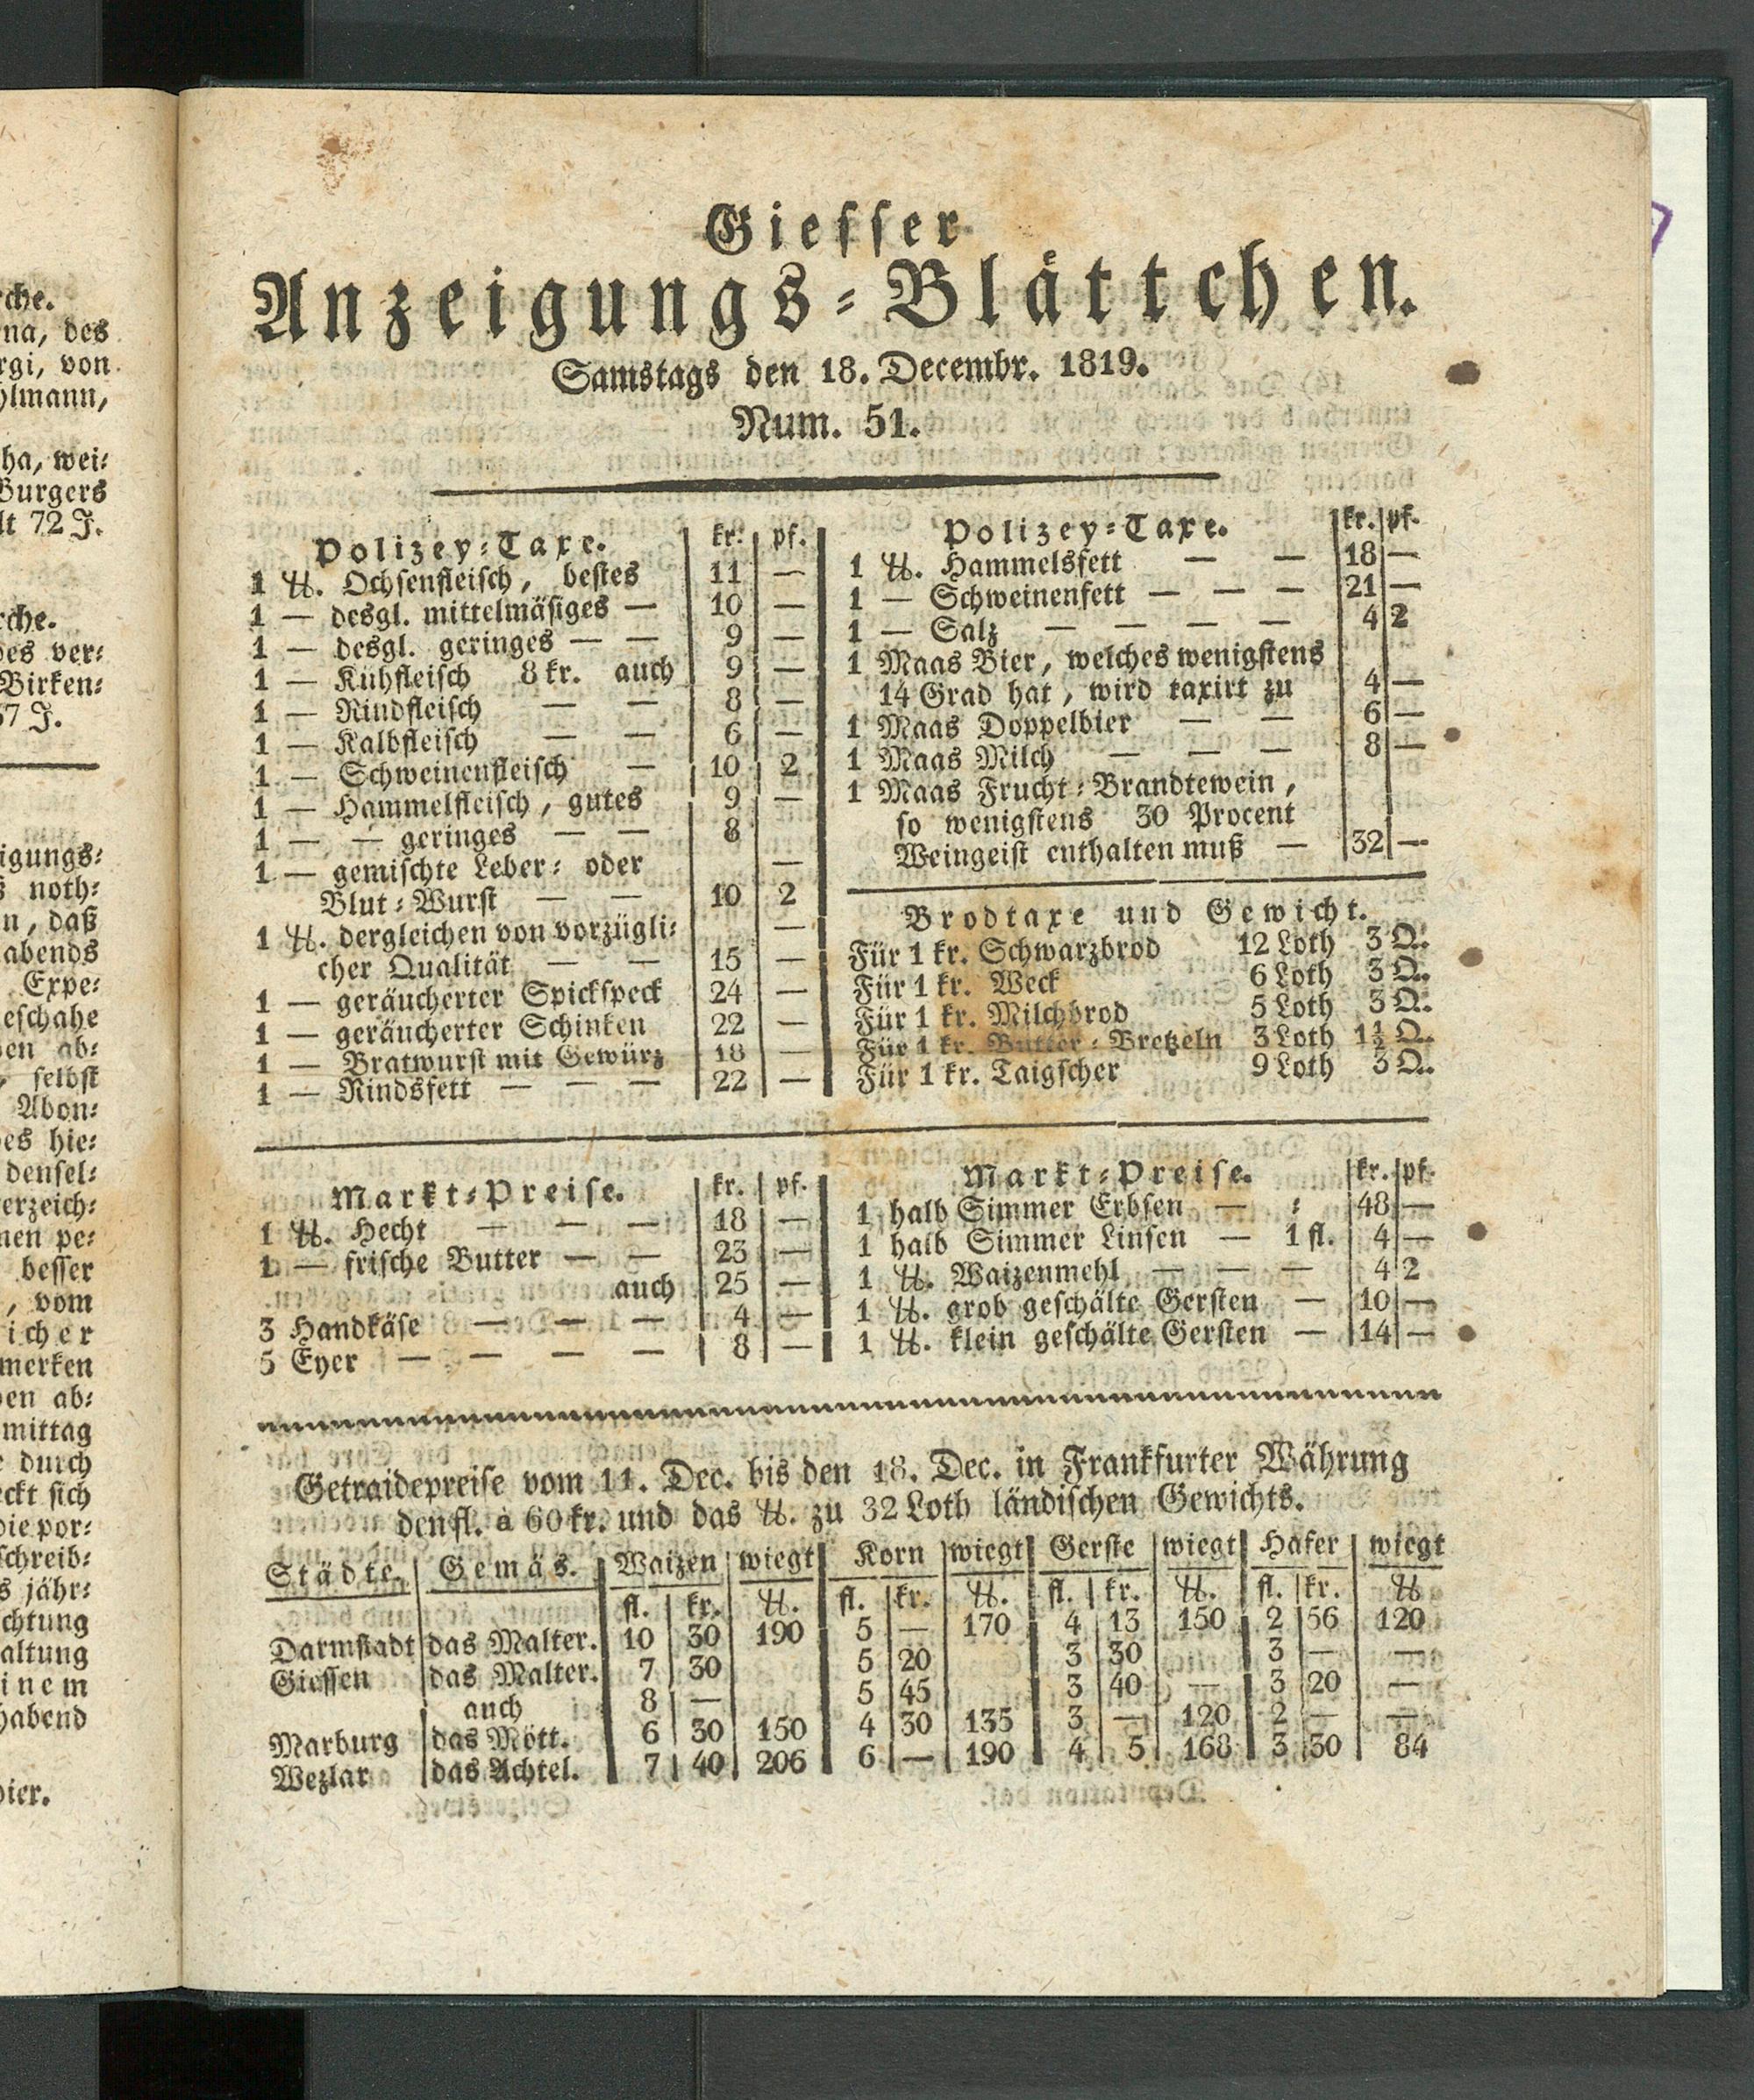 rche.
na, des
rgi, von
hlmann,
ha, wei⸗
Burgers
lt 72 J.
rche.
des ver⸗
Birken⸗
57 J.
igungs⸗
noth⸗
n, daß
abends
Expe⸗
eschahe
en ab⸗
selbst
Abon⸗
es hie⸗
densel⸗
erzeich⸗
nen pe⸗
besser
, vom
icher
merken
en ab⸗
mittag
durch
eckt sich
die por⸗
schreib⸗
s jähr⸗
chtung
altung
inem
habend
bier.
Giesser
Anzeigungs⸗Blättchen.
Samstags den 18. Decembr. 1819.
Num. 51.
Polizey⸗Taxe. kr. pf.
1 ℔. Ochsenfleisch, bestes 11 —
1 — desgl. mittelmäsiges — 10 —
1 — desgl. geringes — — 9 —
1 — Kühfleisch 8 kr. auch 9 —
1 — Rindfleisch — — 8 —
1 — Kalbfleisch — — 6 —
1 — Schweinenfleisch — 10 2
1 — Hammelfleisch, gutes 9 —
1 — — geringes — — 8
1 — gemischte Leber⸗ oder —
Blut⸗Wurst — — 10 2
1 ℔. dergleichen von vorzügli⸗ —
cher Qualität — — 15 —
1 — geräucherter Spickspeck 24 —
1 — geräucherter Schinken 22 —
1 — Bratwurst mit Gewürz 18 —
1 — Rindsfett — — — 22 —
Polizey⸗Taxe. kr. pf.
1 ℔. Hammelsfett — — 18 —
1 — Schweinenfett — — — 21 —
1 — Salz — — — — 4 2
1 Maas Bier, welches wenigstens
14 Grad hat, wird taxirt zu 4 —
1 Maas Doppelbier — — 6 —
1 Maas Milch — — — 8 —
1 Maas Frucht⸗Brandtewein,
so wenigstens 30 Procent
Weingeist enthalten muß — 32 —
Brodtaxe und Gewicht.
Für 1 kr. Schwarzbrod 12 Loth 3 Q.
Für 1 kr. Weck 6 Loth 3 Q.
Für 1 kr. Milchbrod 5 Loth 3 Q.
Für 1 kr. Butter⸗Bretzeln 3 Loth 1½ Q.
Für 1 kr. Taigscher 9 Loth 3 Q.
Markt⸗Preise. kr. pf.
1 ℔. Hecht — — — 18 —
1 — frische Butter — — 23 —
auch 25 —
3 Handkäse — — — 4 —
5 Eyer — — — — 8 —
Markt⸗Preise. kr. pf.
1 halb Simmer Erbsen — ⸗ 48 —
1 halb Simmer Linsen — 1 fl. 4 —
1 ℔. Waizenmehl — — — 4 2
1 ℔. grob geschälte Gersten — 10 —
1 ℔. klein geschälte Gersten — 14 —
Getraidepreise vom 11. Dec. bis den 18. Dec. in Frankfurter Währung
den fl. à 60 kr. und das ℔. zu 32 Loth ländischen Gewichts.
Städte. Gemäs. Waizen wiegt Korn wiegt Gerste wiegt Hafer wiegt
fl. kr. ℔. fl. kr. ℔. fl. kr. ℔. fl. kr. ℔
Darmstadt das Malter. 10 30 190 5 — 170 4 13 150 2 56 120
Giessen das Malter. 7 30 5 20 3 30 3 — —
auch 8 — 5 45 3 40 — 3 20 —
Marburg das Mött. 6 30 150 4 30 135 3 — 120 2 — —
Wezlar das Achtel. 7 40 206 6 — 190 4 5 168 3 30 84